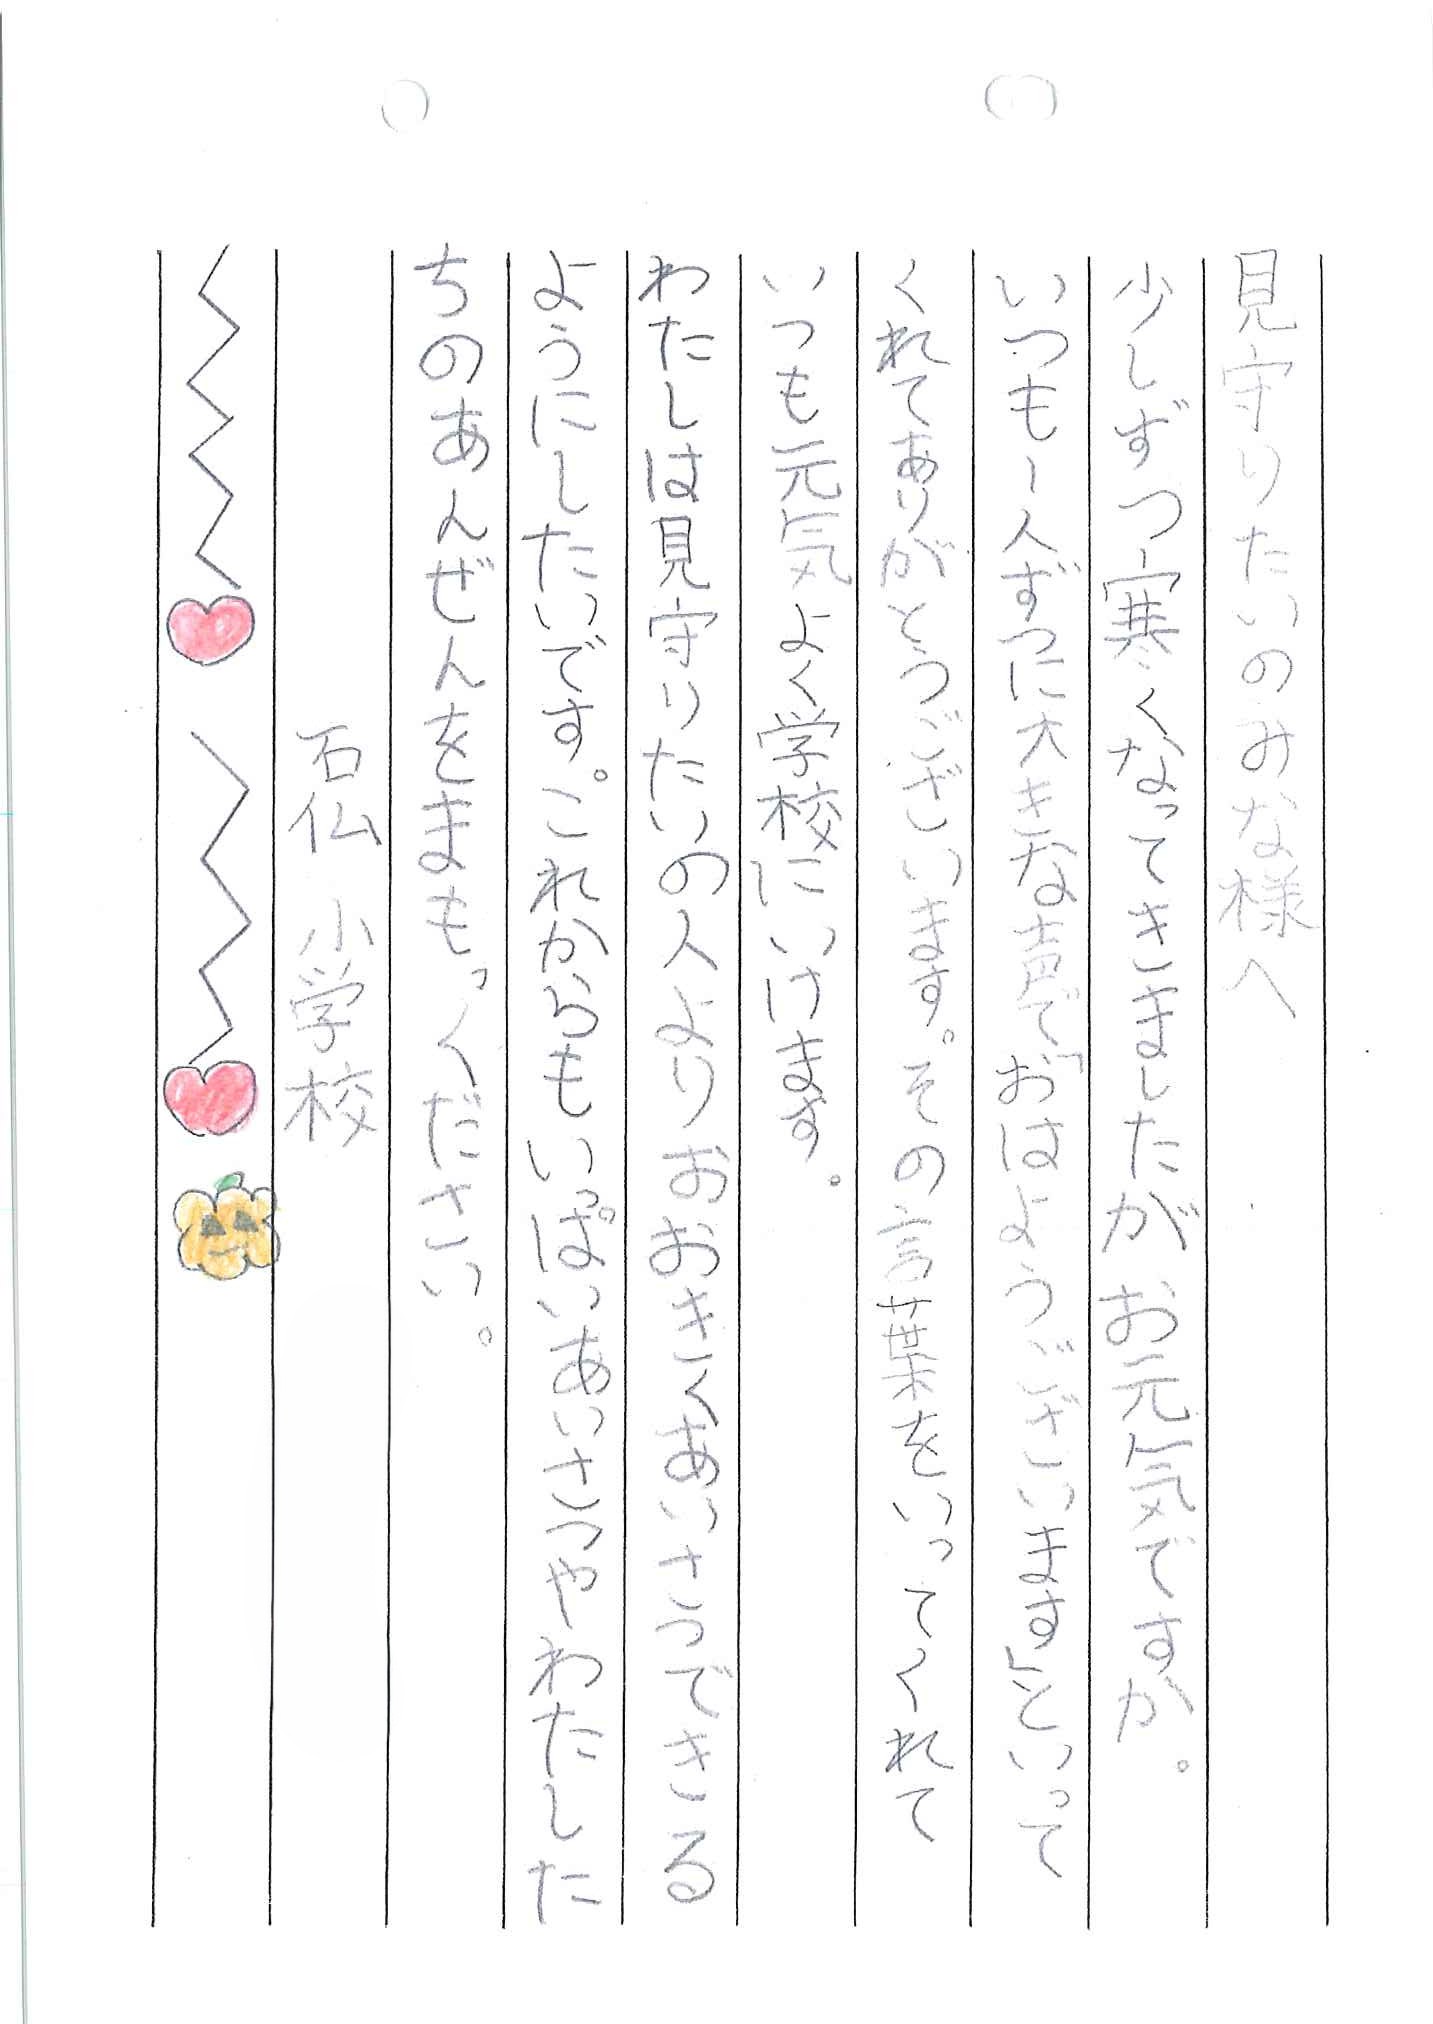 見守りたいのみな様へ
少しずつ寒くなってきましたがお元気ですか。
いつも一人ずつに大きな声で「おはようございます」といって
くれてありがとうございます。その言葉をいってくれて
いつも元気よく学校にいけます。
わたしは見守りたいの人よりおおきくあいさつできる
ようにしたいです。これからもいっぱいあいさつやわたした
ちのあんぜんをまもっください。
石仏小学校